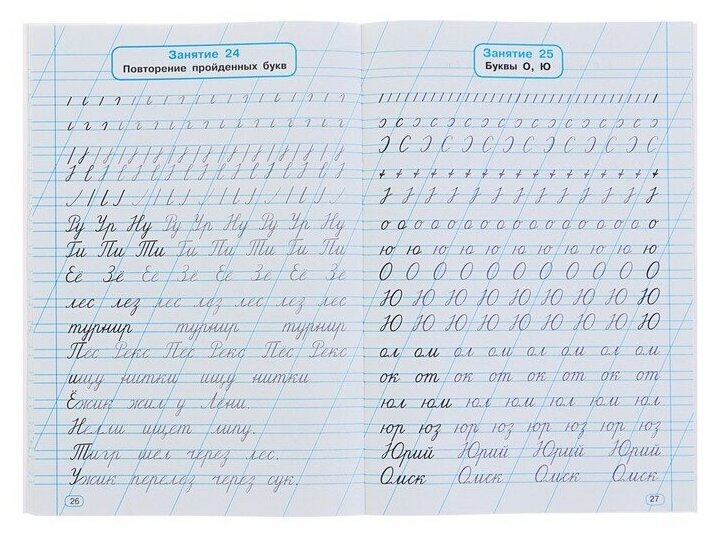 Занятие 24
Повторение пройденных букв
Ру Ур Ну Ру Ур Ну Ру Ур Ну
Ги Пи Ти Ги Пи Ти Ги Пи
Ее Зе Ее Зе Ее Зе Ее Зе
лес лез лес лез лес лез лес
турнир турнир турнир
Пес Рекс Пес Рекс Пес Рекс
ищу нитки ищу нитки
Ёжик жил у Лены.
Нелли ищет липу.
Тигр шел через лес.
Ужик перелез через сук.
26
Занятие 25
Буквы О, Ю
о о о о о о о о о о о о о о о о
ю ю ю ю ю ю ю ю ю ю ю
О О О О О О О О О О О
Ю Ю Ю Ю Ю Ю Ю Ю Ю
Ю Ю Ю Ю Ю Ю Ю Ю Ю
ол ом ол ом ол ом ол ом
ок от ок от ок от ок от
юл юм юл юм юл юм юл
юр юз юр юз юр юз юр юз
Юрий Юрий Юрий Юрий
Омск Омск Омск Омск
27